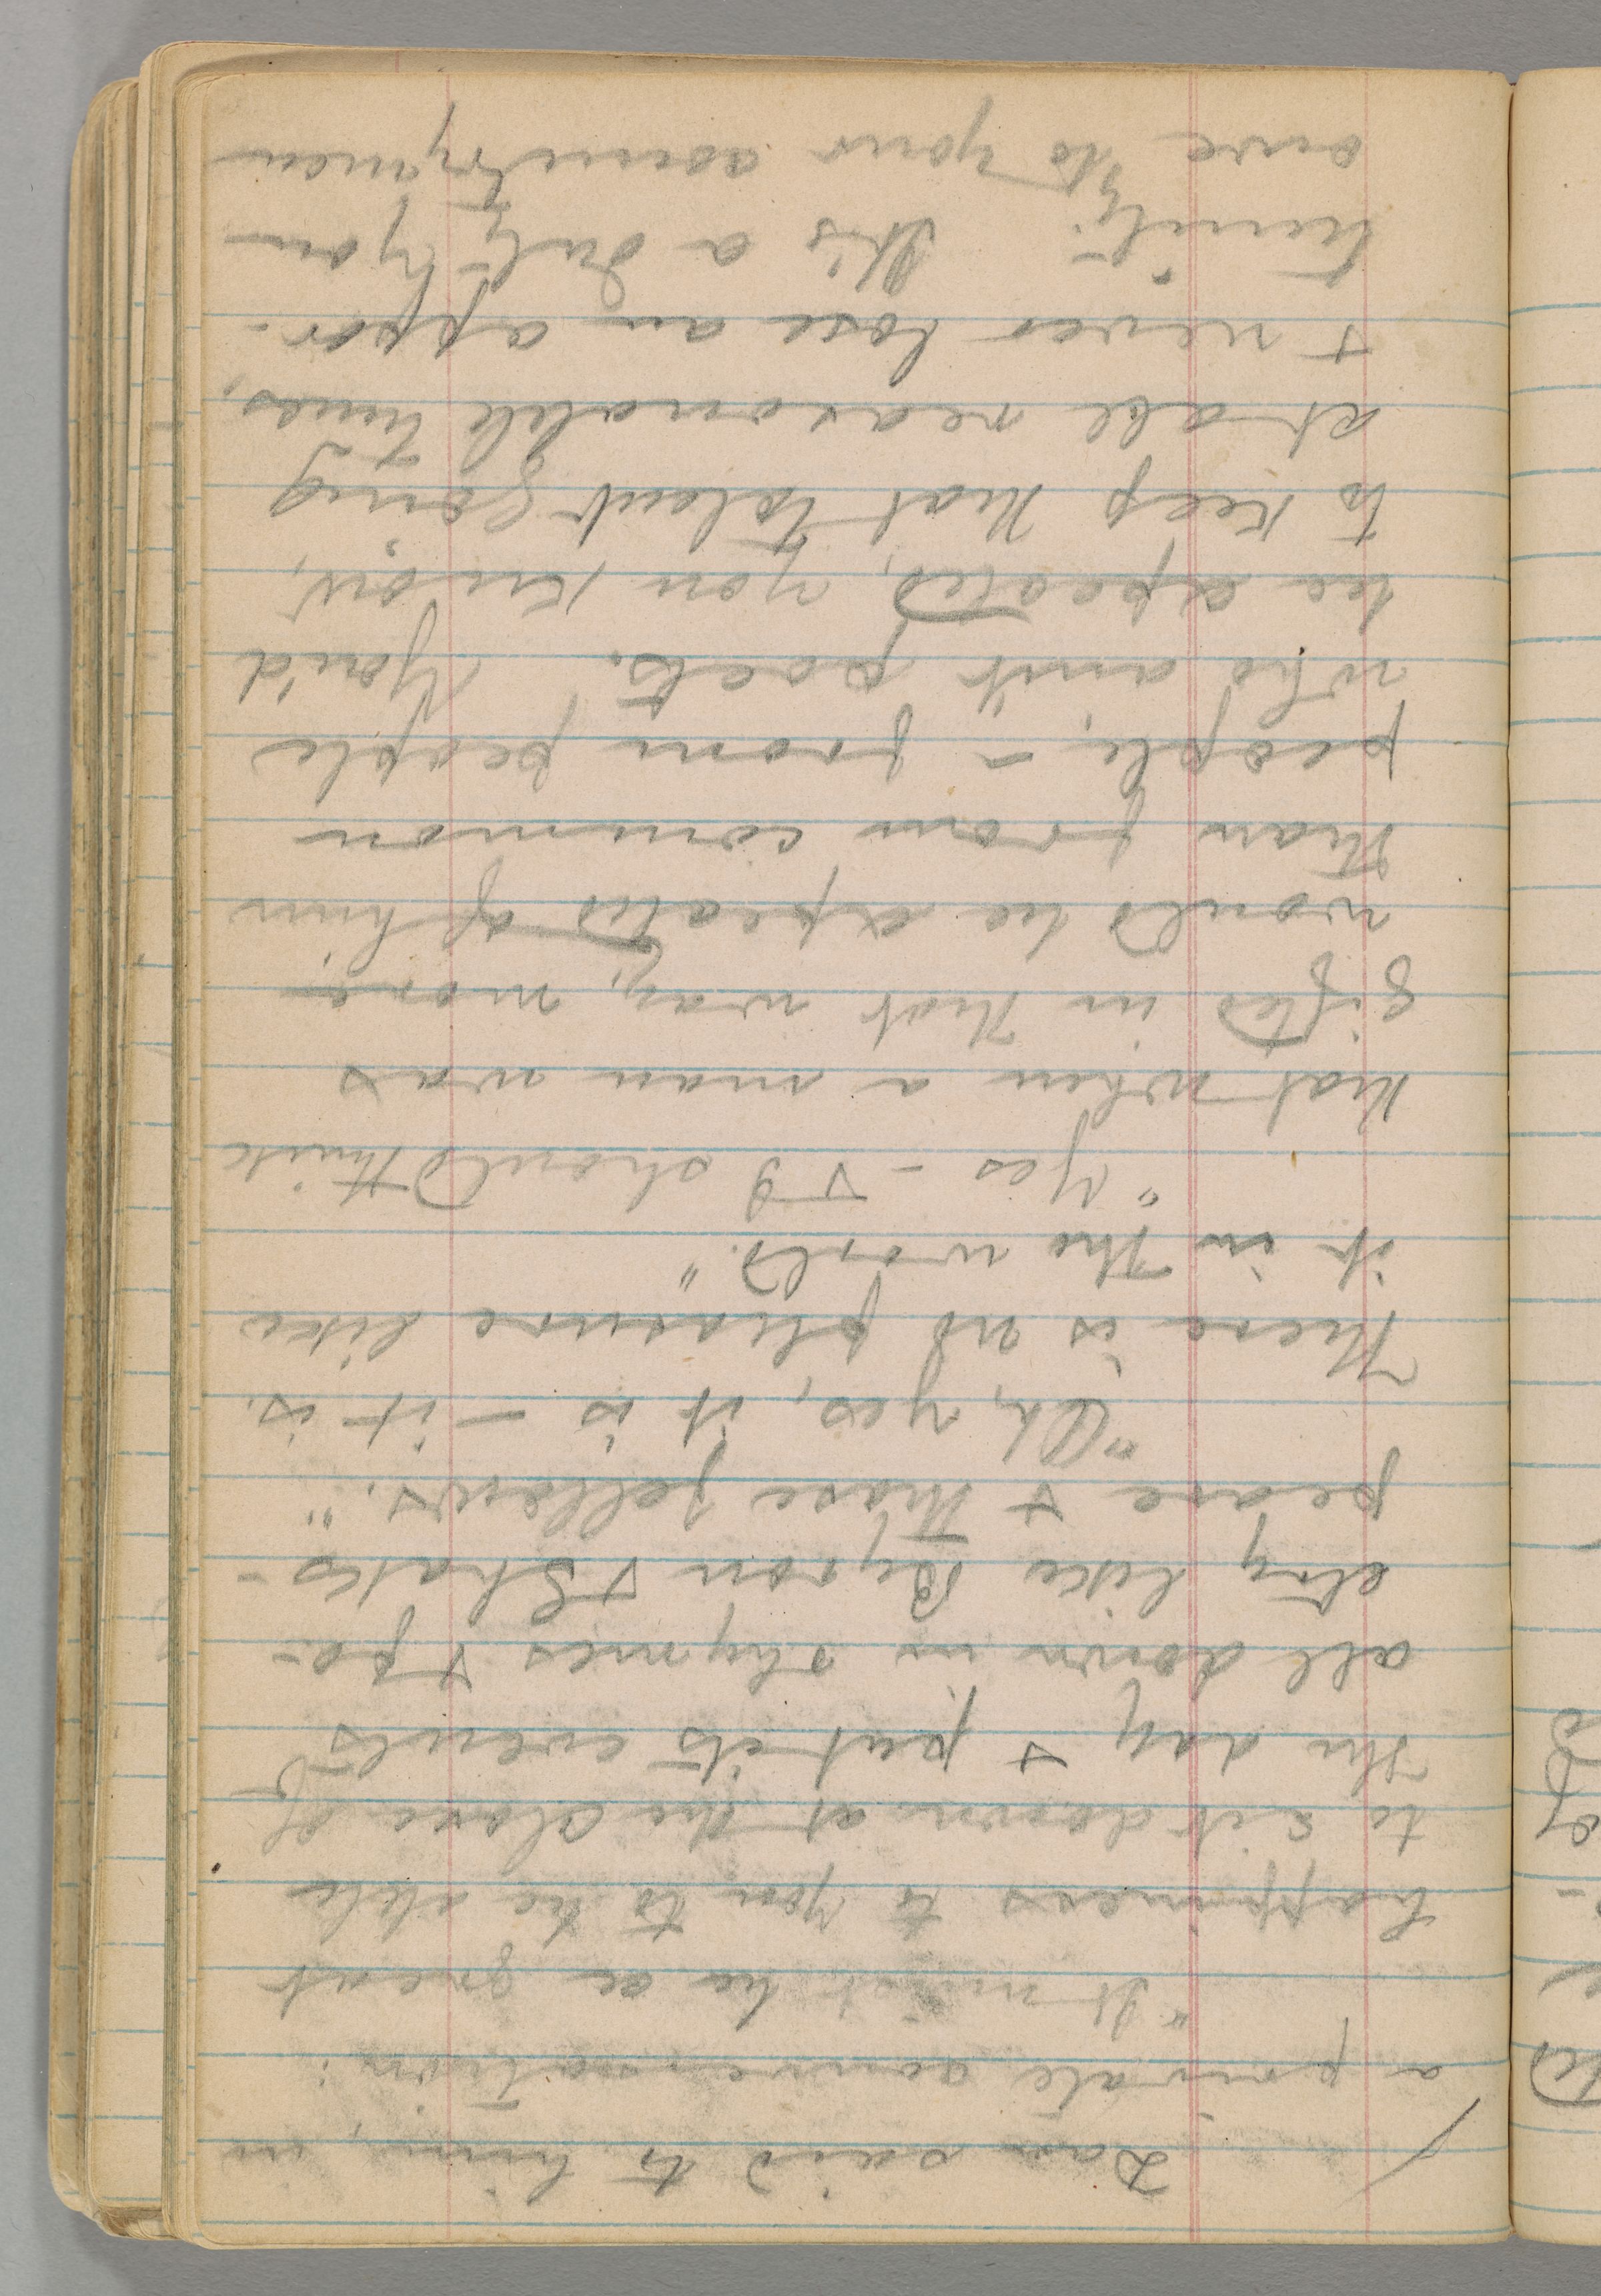 Dan said to him, in
a private conversation:
"It must be a great
happiness to you to be able
to sit down at the close of
the day & put its events
all down in rhymes & po-
etry like Byron & Shaks-
peare & those fellows."
"Oh, yes, it is – it is.
There is no pleasure like
it in the world."
"Yes – & I should think
that when a man was
gifted in that way, more
would be expected of him
than from common
people, – from people
who ain't poets. You'd
be expected, you know,
to keep that talent going
at all reasonable times,
& never lose an oppor-
tunity. It's a duty you
owe to your countrymen